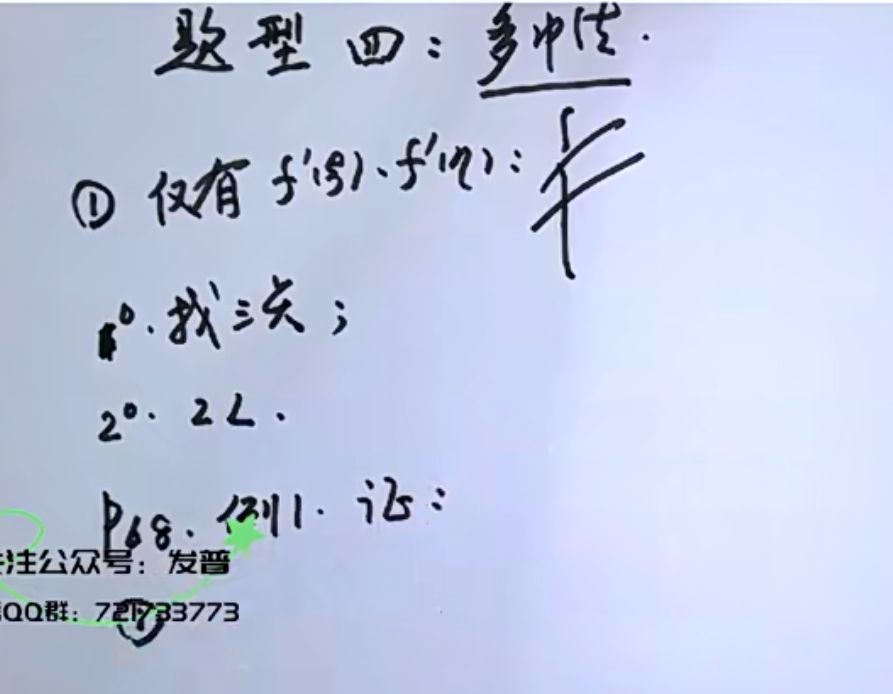 题型四：多中值.
① 仅有 f'(ξ)、f'(η)：
1°. 找三点；
2°. 2L.
P68. 例1. 证：
注公众号：发普
QQ群：721733773
①